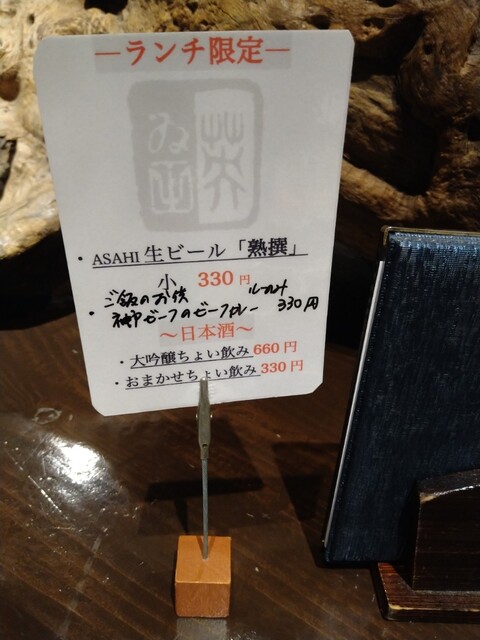 ーランチ限定ー
・ASAHI 生ビール「熟撰」
小 330 円
・ご飯のお供 ルーのみ
神戸ビーフのビーフカレー 330円
～日本酒～
・大吟醸ちょい飲み 660 円
・おまかせちょい飲み 330 円